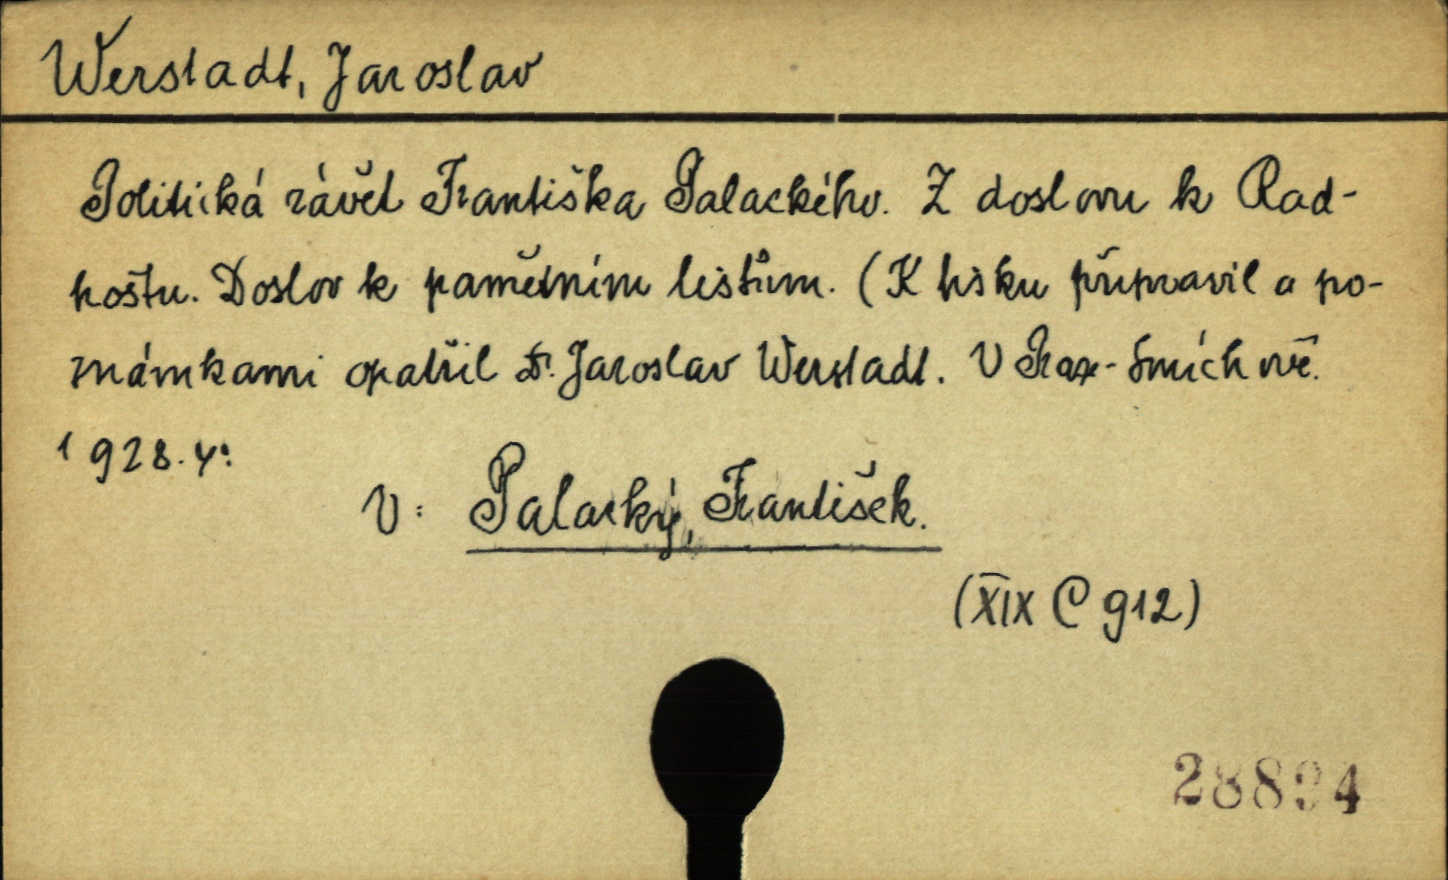 Werstadt, Jaroslav
Politická závět Františka Palackého. Z doslovu k Rad-
hoštu. Doslov k památním listům. (K tisku připravil a po-
známkami opatřil Dr. Jaroslav Werstadt. V Praze-Smíchově.
1928. 4°.
V: Palacký, František.
(XIX C 912)
28894